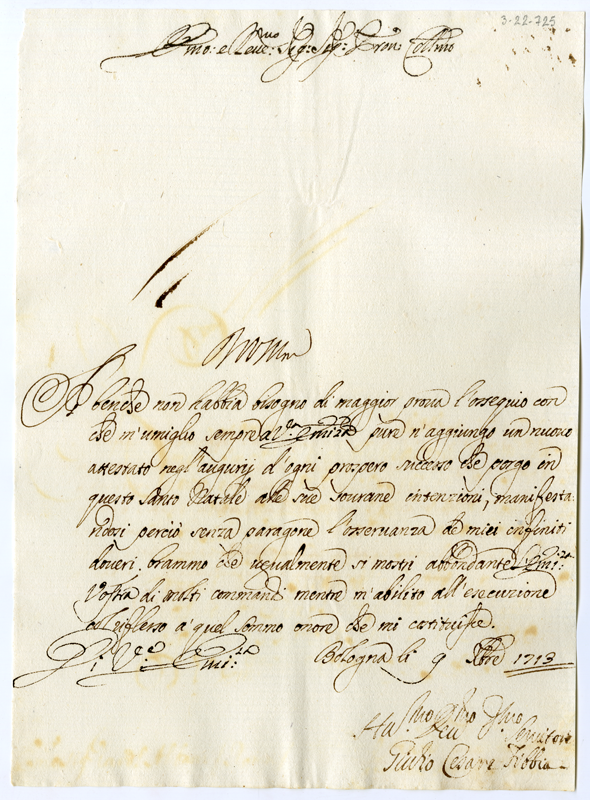 3-22-725
Emo: e Reve: Sig: Sig: Pron: Collmo
benche non habbia bisogno di maggior proua l'ossequio con
che m'umiglio sempre a V.ra Emin.za pure n'aggiungo un nuovo
attestato negl'augurij d'ogni prospero successo che porgo in
questo Santo Natale alle sue Sourane intenzioni, manifesta:
ndosi perciò senza paragone l'osseruanza de miei infiniti
doueri. brammo che ugualmente si mostri abbondante Emi:za
Vostra di molti commandi mentre m'abilito all'esecuzione
a quel sommo onore che mi costituisce.
Di V.ra Emi:za Bologna li 9 Xbre 1713
Hu.mo Deu.mo Seruitore
Giulio Cesare